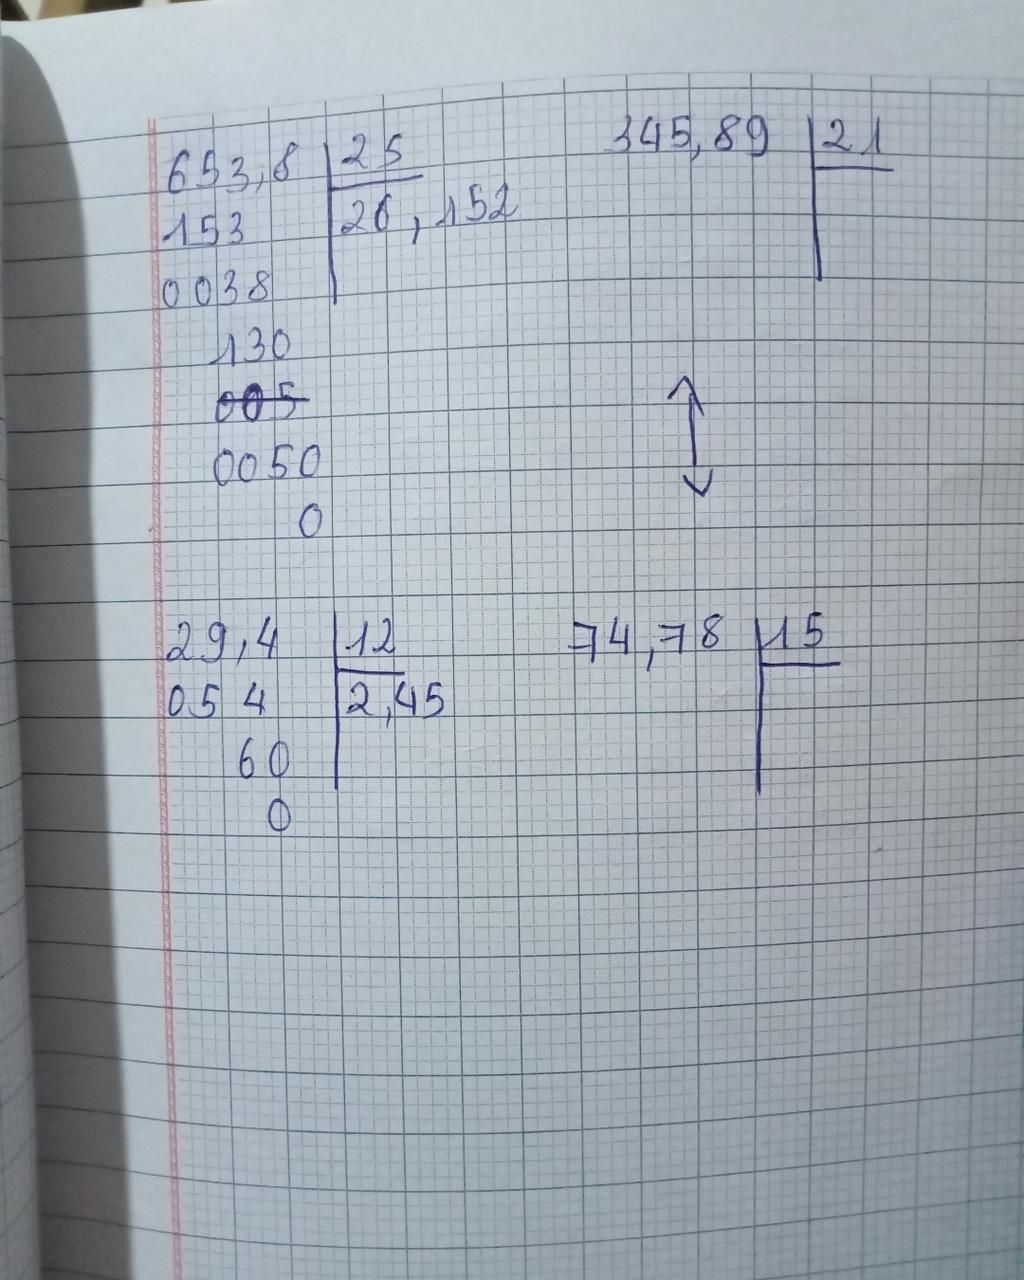 653,8 25
26,152
153
0038
130
005
0050
0
345,89 21
29,4 12
2,45
054
60
0
74,78 15